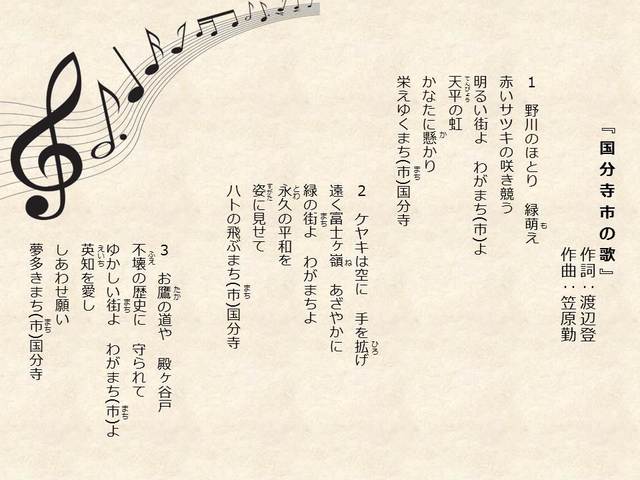 『国分寺市の歌』
作詞：渡辺登
作曲：笠原勤
1　野川のほとり　緑萌え
赤いサツキの咲き競う
明るい街よ　わがまち(市)よ
天平の虹
かなたに懸かり
栄えゆくまち(市)国分寺
2　ケヤキは空に　手を拡げ
遠く富士ヶ嶺　あざやかに
緑の街よ　わがまちよ
永久の平和を
姿に見せて
ハトの飛ぶまち(市)国分寺
3　お鷹の道や　殿ヶ谷戸
不壊の歴史に　守られて
ゆかしい街よ　わがまち(市)よ
英知を愛し
しあわせ願い
夢多きまち(市)国分寺